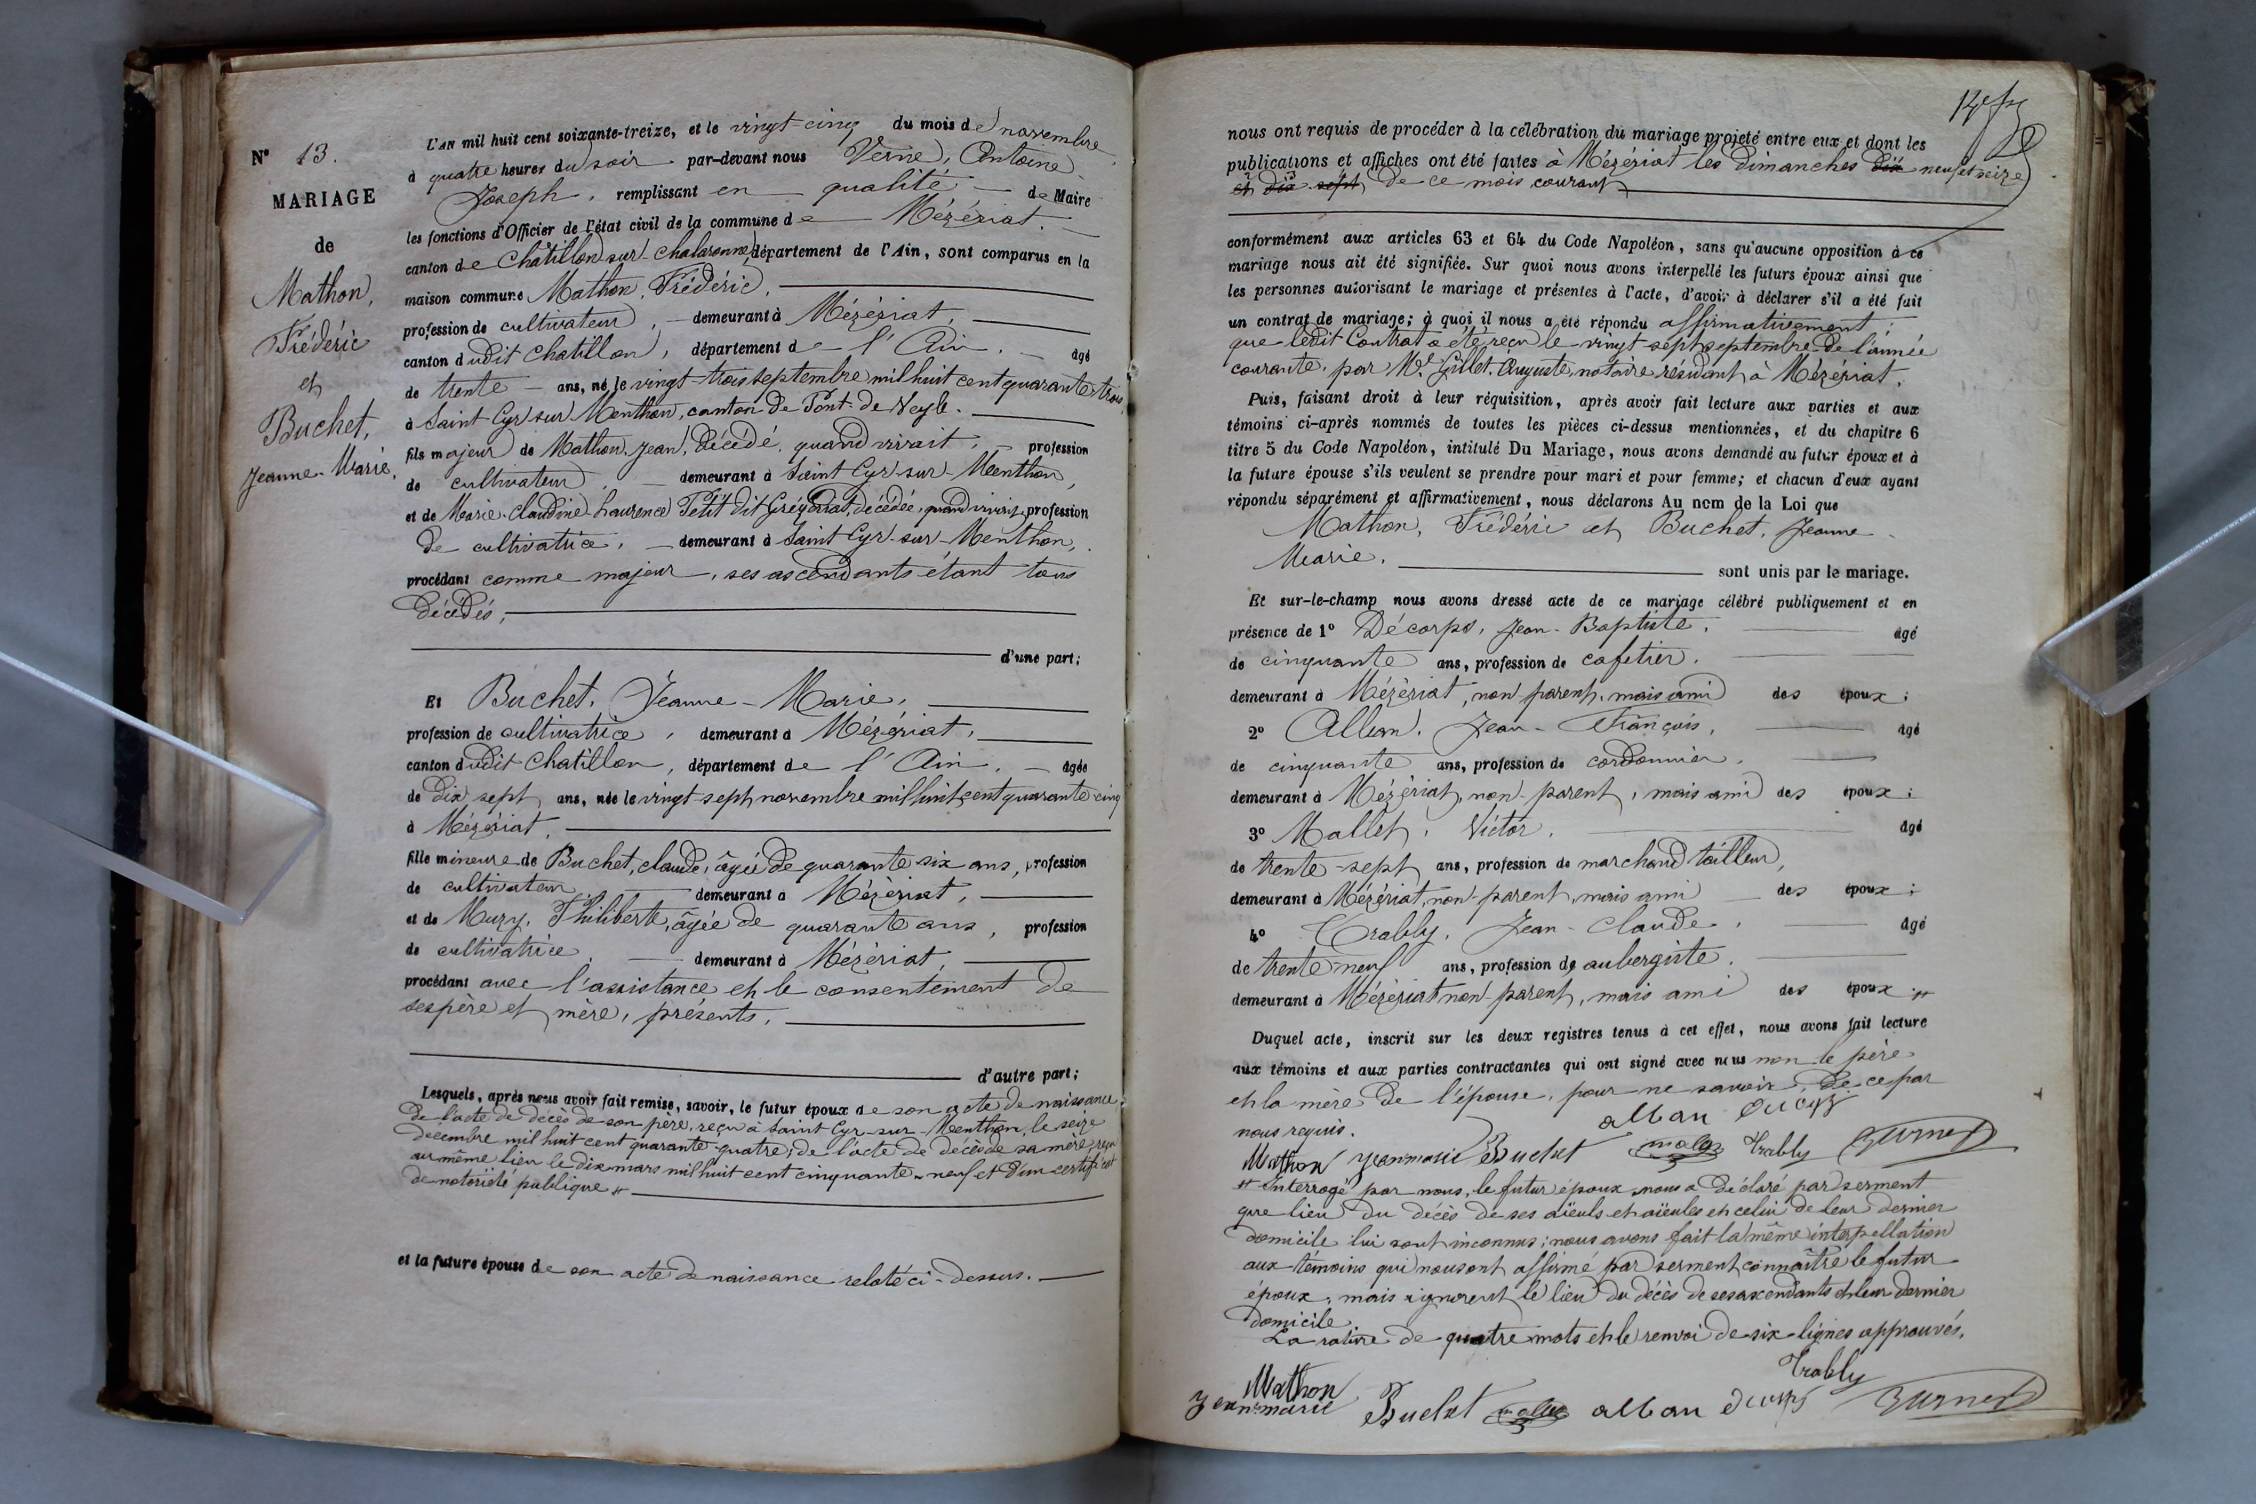 N° 13.
MARIAGE
de
Mathon,
Frédéric
et
Buchet,
Jeanne-Marie.
L'AN mil huit cent soixante-treize, et le vingt-cinq du mois de novembre,
à quatre heures du soir par-devant nous Verne, Antoine
Joseph, remplissant en qualité de Maire
les fonctions d'Officier de l'état civil de la commune de Mézériat.
canton de Châtillon-sur-Chalaronne, département de l'Ain, sont comparus en la
maison commune Mathon, Frédéric,
profession de cultivateur, demeurant à Mézériat,
canton dudit Chatillon, département de l'Ain. âgé
de trente ans, né le vingt-trois septembre mil huit cent quarante trois,
à Saint Cyr sur Menthon, canton de Pont-de-Veyle.
fils majeur de Mathon Jean, décédé, quand vivait, profession
de cultivateur, demeurant à Saint Cyr-sur-Menthon,
et de Marie-Claudine-Laurence Petit dit Grégorat, décédée, quand vivait, profession
de cultivatrice, demeurant à Saint Cyr-sur-Menthon,
procédant comme majeur, ses ascendants étant tous
décédés,
d'une part;
Et Buchet, Jeanne-Marie,
profession de cultivatrice, demeurant à Mézériat,
canton dudit Chatillon, département de l'Ain. âgée
de dix sept ans, née le vingt-sept novembre mil huit cent quarante cinq
à Mézériat,
fille mineure de Buchet, claude, âgé de quarante six ans, profession
de cultivateur demeurant à Mézériat,
et de Mury, Philiberte, âgée de quarante ans, profession
de cultivatrice demeurant à Mézériat,
procédant avec l'assistance et le consentement de
ses père et mère, présents,
d'autre part;
Lesquels, après nous avoir fait remise, savoir, le futur époux de son acte de naissance
de l'acte de décès de son père, reçu à Saint Cyr-sur-Menthon, le seize
décembre mil huit cent quarante-quatre; de l'acte de décès de sa mère, reçu
au même lieu le dix mars mil huit cent cinquante-neuf et d'un certificat
de notoriété publique #
et la future épouse de son acte de naissance relaté ci-dessus.
nous ont requis de procéder à la célébration du mariage projeté entre eux et dont les
publications et affiches ont été faites à Mézériat les dimanches dix neuf et seize
et dix-sept, de ce mois courant
conformément aux articles 63 et 64 du Code Napoléon, sans qu'aucune opposition à ce
mariage nous ait été signifiée. Sur quoi nous avons interpellé les futurs époux ainsi que
les personnes autorisant le mariage et présentes à l'acte, d'avoir à déclarer s'il a été fait
un contrat de mariage; à quoi il nous a été répondu affirmativement:
que ledit Contrat a été reçu le vingt sept septembre de l'année
courante, par Me Gillet, Auguste, notaire résidant à Mézériat.
Puis, faisant droit à leur réquisition, après avoir fait lecture aux parties et aux
témoins ci-après nommés de toutes les pièces ci-dessus mentionnées, et du chapitre 6
titre 5 du Code Napoléon, intitulé Du Mariage, nous avons demandé au futur époux et à
la future épouse s'ils veulent se prendre pour mari et pour femme; et chacun d'eux ayant
répondu séparément et affirmativement, nous déclarons Au nom de la Loi que
Mathon, Frédéric et Buchet, Jeanne
Marie. sont unis par le mariage.
Et sur-le-champ nous avons dressé acte de ce mariage célébré publiquement et en
présence de 1° Décorps, Jean-Baptiste, âgé
de cinquante ans, profession de cafetier.
demeurant à Mézériat, non parent, mais ami des époux;
2° Alban, Jean-François, âgé
de cinquante ans, profession de cordonnier,
demeurant à Mézériat, non-parent, mais ami des époux;
3° Mallet, Victor, âgé
de trente-sept ans, profession de marchand tailleur,
demeurant à Mézériat, non-parent, mais ami des époux;
4° Trably, Jean-Claude, âgé
de trente-neuf ans, profession de aubergiste.
demeurant à Mézériat non-parent, mais ami des époux. #
Duquel acte, inscrit sur les deux registres tenus à cet effet, nous avons fait lecture
aux témoins et aux parties contractantes qui ont signé avec nous non le père
et la mère de l'épouse, pour ne savoir, de ce par
nous requis.
alban
Mathon Jeanmarie Buchet Trably
# Interrogé par nous, le futur époux nous a déclaré par serment
que lieu du décès de ses aïeuls et aïeules et celui de leur dernier
domicile lui sont inconnus; nous avons fait la même interpellation
aux témoins qui nous ont affirmé par serment connaître le futur
époux, mais ignorent le lieu du décès de ses ascendants et leur dernier
domicile.
La rature de quatre mots et le renvoi de six lignes approuvés.
Trably
Mathon
Jeanmarie Buchet alban